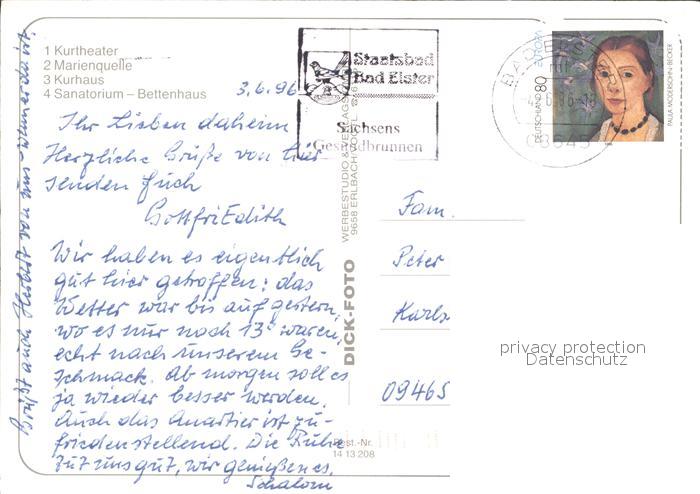 1 Kurtheater
2 Marienquelle
3 Kurhaus
4 Sanatorium – Bettenhaus
3.6.96
Ihr Lieben daheim
Herzliche Grüße von hier
senden Euch
GottfriEdith
Wir haben es eigentlich
gut hier getroffen: das
Wetter war bis auf gestern,
wo es nur noch 13° waren,
echt nach unserem Ge-
schmack. Ab morgen soll es
ja wieder besser werden.
Auch das Quartier ist zu-
friedenstellend. Die Ruhe
tut uns gut, wir genießen es.
Schalom
Grüßt auch Herbert von uns
Staatsbad
Bad Elster
Sachsens
Gesundbrunnen
WERBESTUDIO & VERLAGS
9658 ERLBACH/VOGTL.
DICK-FOTO
Best.-Nr.
14 13 208
EUROPA
DEUTSCHLAND 80
PAULA MODERSOHN-BECKER
BAD ELSTER
08645
Fam.
Peter
Karls
09465
privacy protection
Datenschutz